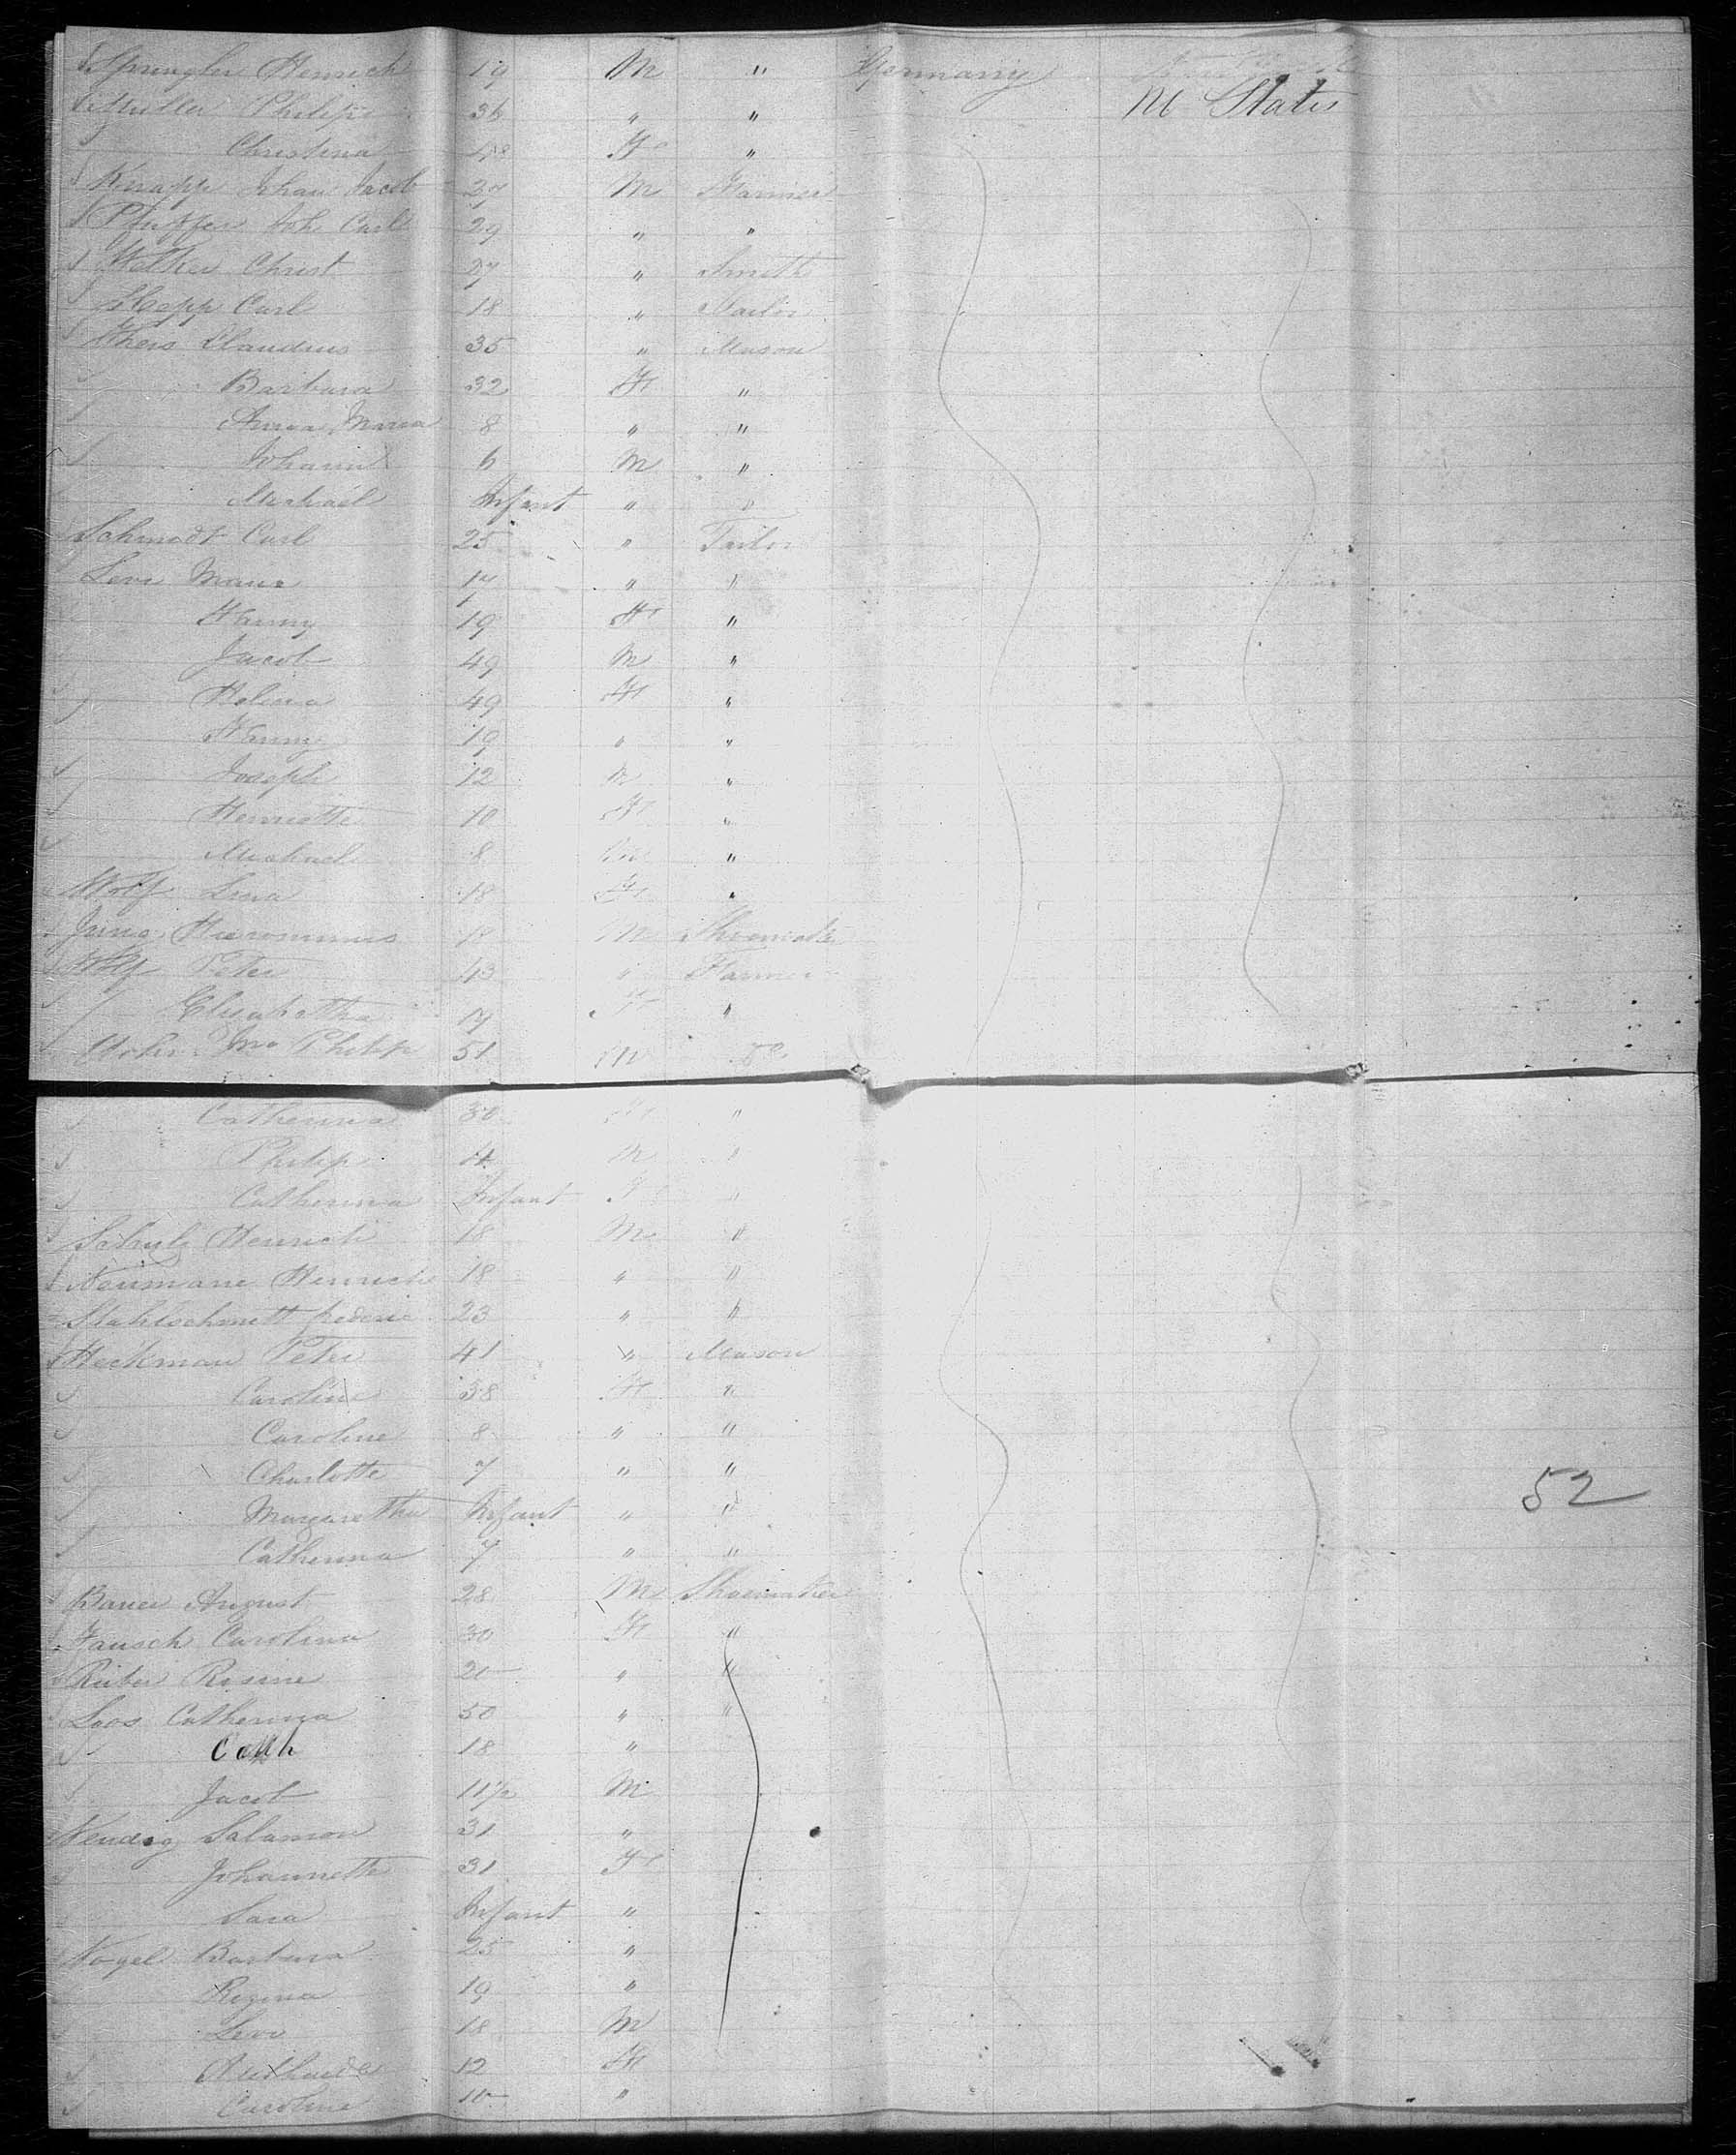 Sprengler Henrich 19 M " Germany
U States
Muller Philipp 36 " "
Christina 48 F "
Knapp Johan Jacob 27 M Farmer
Joh Carl 29 " "
Christ 27 " Smith
Carl 18 " Tailor
Theis Claudius 35 " Mason
Barbara 32 F "
Anna Maria 8 " "
Johann 6 M "
Michael Infant " "
Schmidt Carl 25 " Tailor
Levi 17 " "
Fanny 19 F "
Jacob 49 M "
Helena 49 F "
Fanny 19 " "
Joseph 12 M "
Henriette 10 F "
Michael 8 M "
Wolf Lena 18 F "
Jung Hieronimus 18 M Shoemaker
Wolf Peter 43 " Farmer
Elisabetha 17 F "
Philipp 51 M Do
Catherina 30 F "
Philip 4 M "
Catherina Infant F "
Schulz Henrich 18 M "
Neumann Henrich 18 " "
Stahlschmitt Frederic 23 " "
Heckman Peter 41 " Mason
Caroline 38 F "
Caroline 8 " "
Charlotte 7 " "
52
Margaretha Infant " "
Catherina 7 " "
Bauer August 28 M Shoemaker
Jausch Carolina 30 F "
Rosine 20 " "
Loos Catherina 50 " "
Cath 18 "
Jacob 11½ M
Salamon 31 "
Johannette 31 F
Sara Infant "
Vogel Barbara 25 "
Regina 19 "
Levi 18 M
12 F
Caroline 10 "